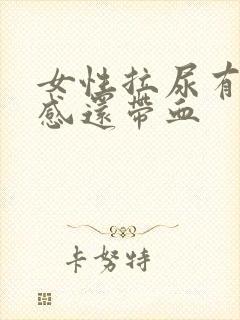 女性拉尿有
感還帶血
卡努特